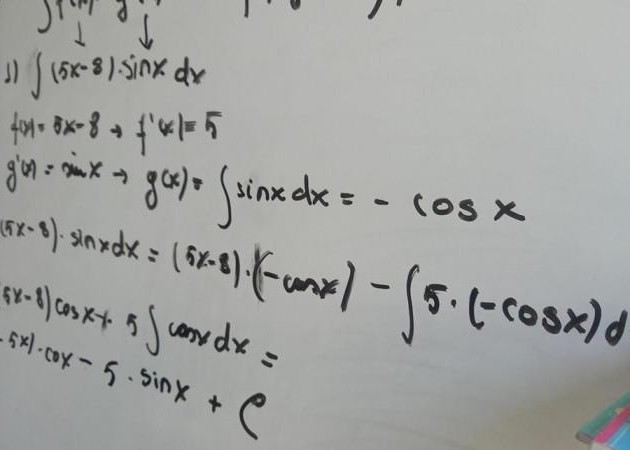 ∫(5x-8)·sinx dx
f(x) = 5x-8 → f'(x) = 5
g'(x) = sinx → g(x) = ∫sinx dx = - cos x
(5x-8)·sinxdx = (5x-8)·(-cosx) - ∫5·(-cosx)d
5x-8)cosx+ 5∫cosxdx =
5x)·cox - 5·sinx + C